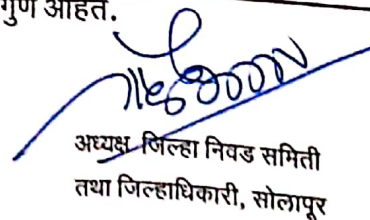 गुण आहेत.
अध्यक्ष जिल्हा निवड समिती
तथा जिल्हाधिकारी, सोलापूर